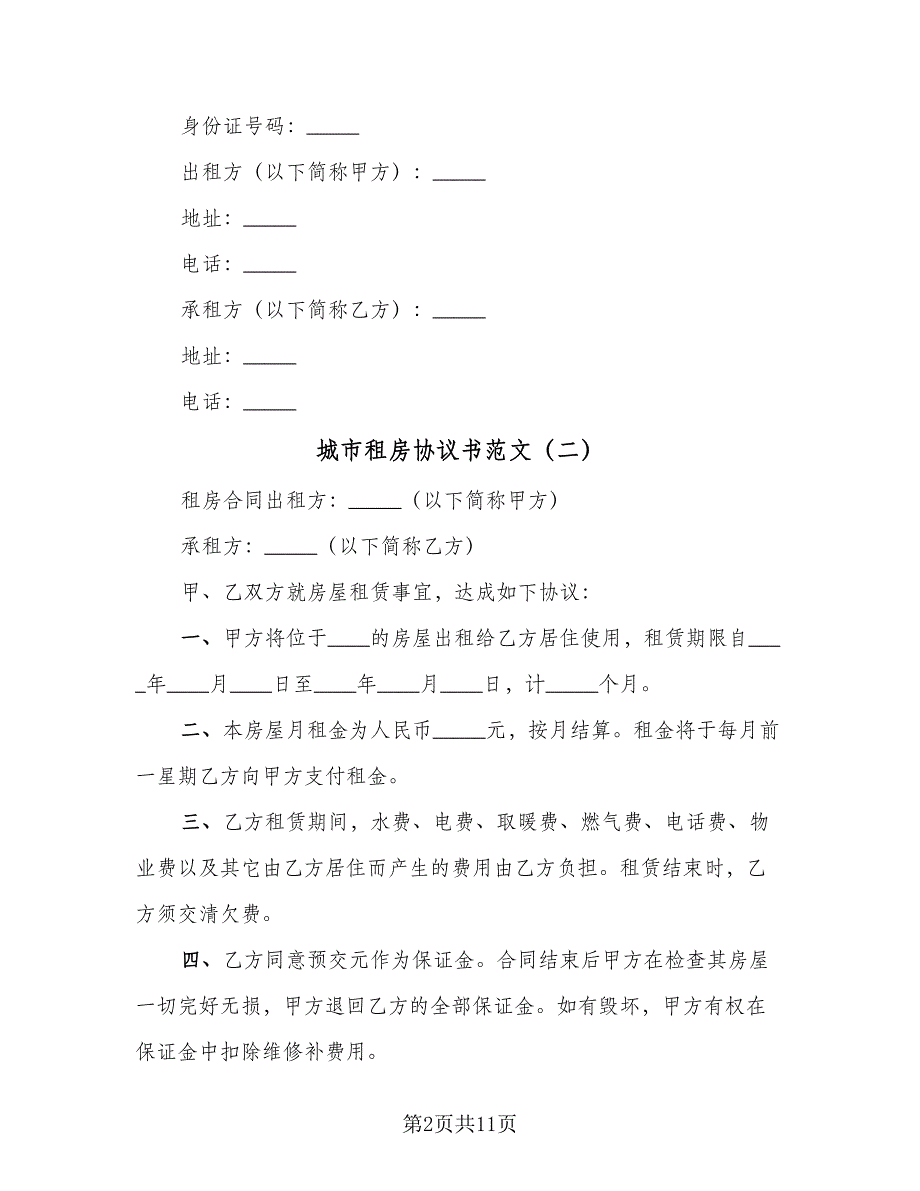 身份证号码：_____
出租方（以下简称甲方）：_____
地址：_____
电话：_____
承租方（以下简称乙方）：_____
地址：_____
电话：_____
城市租房协议书范文（二）
租房合同出租方：_____（以下简称甲方）
承租方：_____（以下简称乙方）
甲、乙双方就房屋租赁事宜，达成如下协议：
一、甲方将位于____的房屋出租给乙方居住使用，租赁期限自___
_年____月____日至____年____月____日，计_____个月。
二、本房屋月租金为人民币_____元，按月结算。租金将于每月前
一星期乙方向甲方支付租金。
三、乙方租赁期间，水费、电费、取暖费、燃气费、电话费、物
业费以及其它由乙方居住而产生的费用由乙方负担。租赁结束时，乙
方须交清欠费。
四、乙方同意预交元作为保证金。合同结束后甲方在检查其房屋
一切完好无损，甲方退回乙方的全部保证金。如有毁坏，甲方有权在
保证金中扣除维修补费用。
第2页共11页